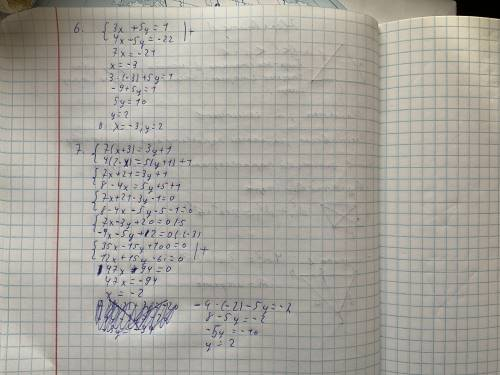 6. { 3x + 5y = 1 | +
4x - 5y = -22
7x = -21
x = -3
3·(-3)+5y=1
-9+5y=1
5y=10
y=2
x=-3, y=2
7. { 7(x+3)=3y+1
4(2-x)=5(y+1)+1
{ 7x+21=3y+1
8-4x=5y+5+1
{ 7x+21-3y-1=0
8-4x-5y-5-1=0
{ 7x-3y+20=0 |·5
-4x-5y+2=0 |·(-3)
{ 35x-15y+100=0 | +
12x+15y-6=0
47x+94=0
47x=-94
x=-2
-4·(-2)-5y=-2
8-5y=-2
-5y=-10
y=2